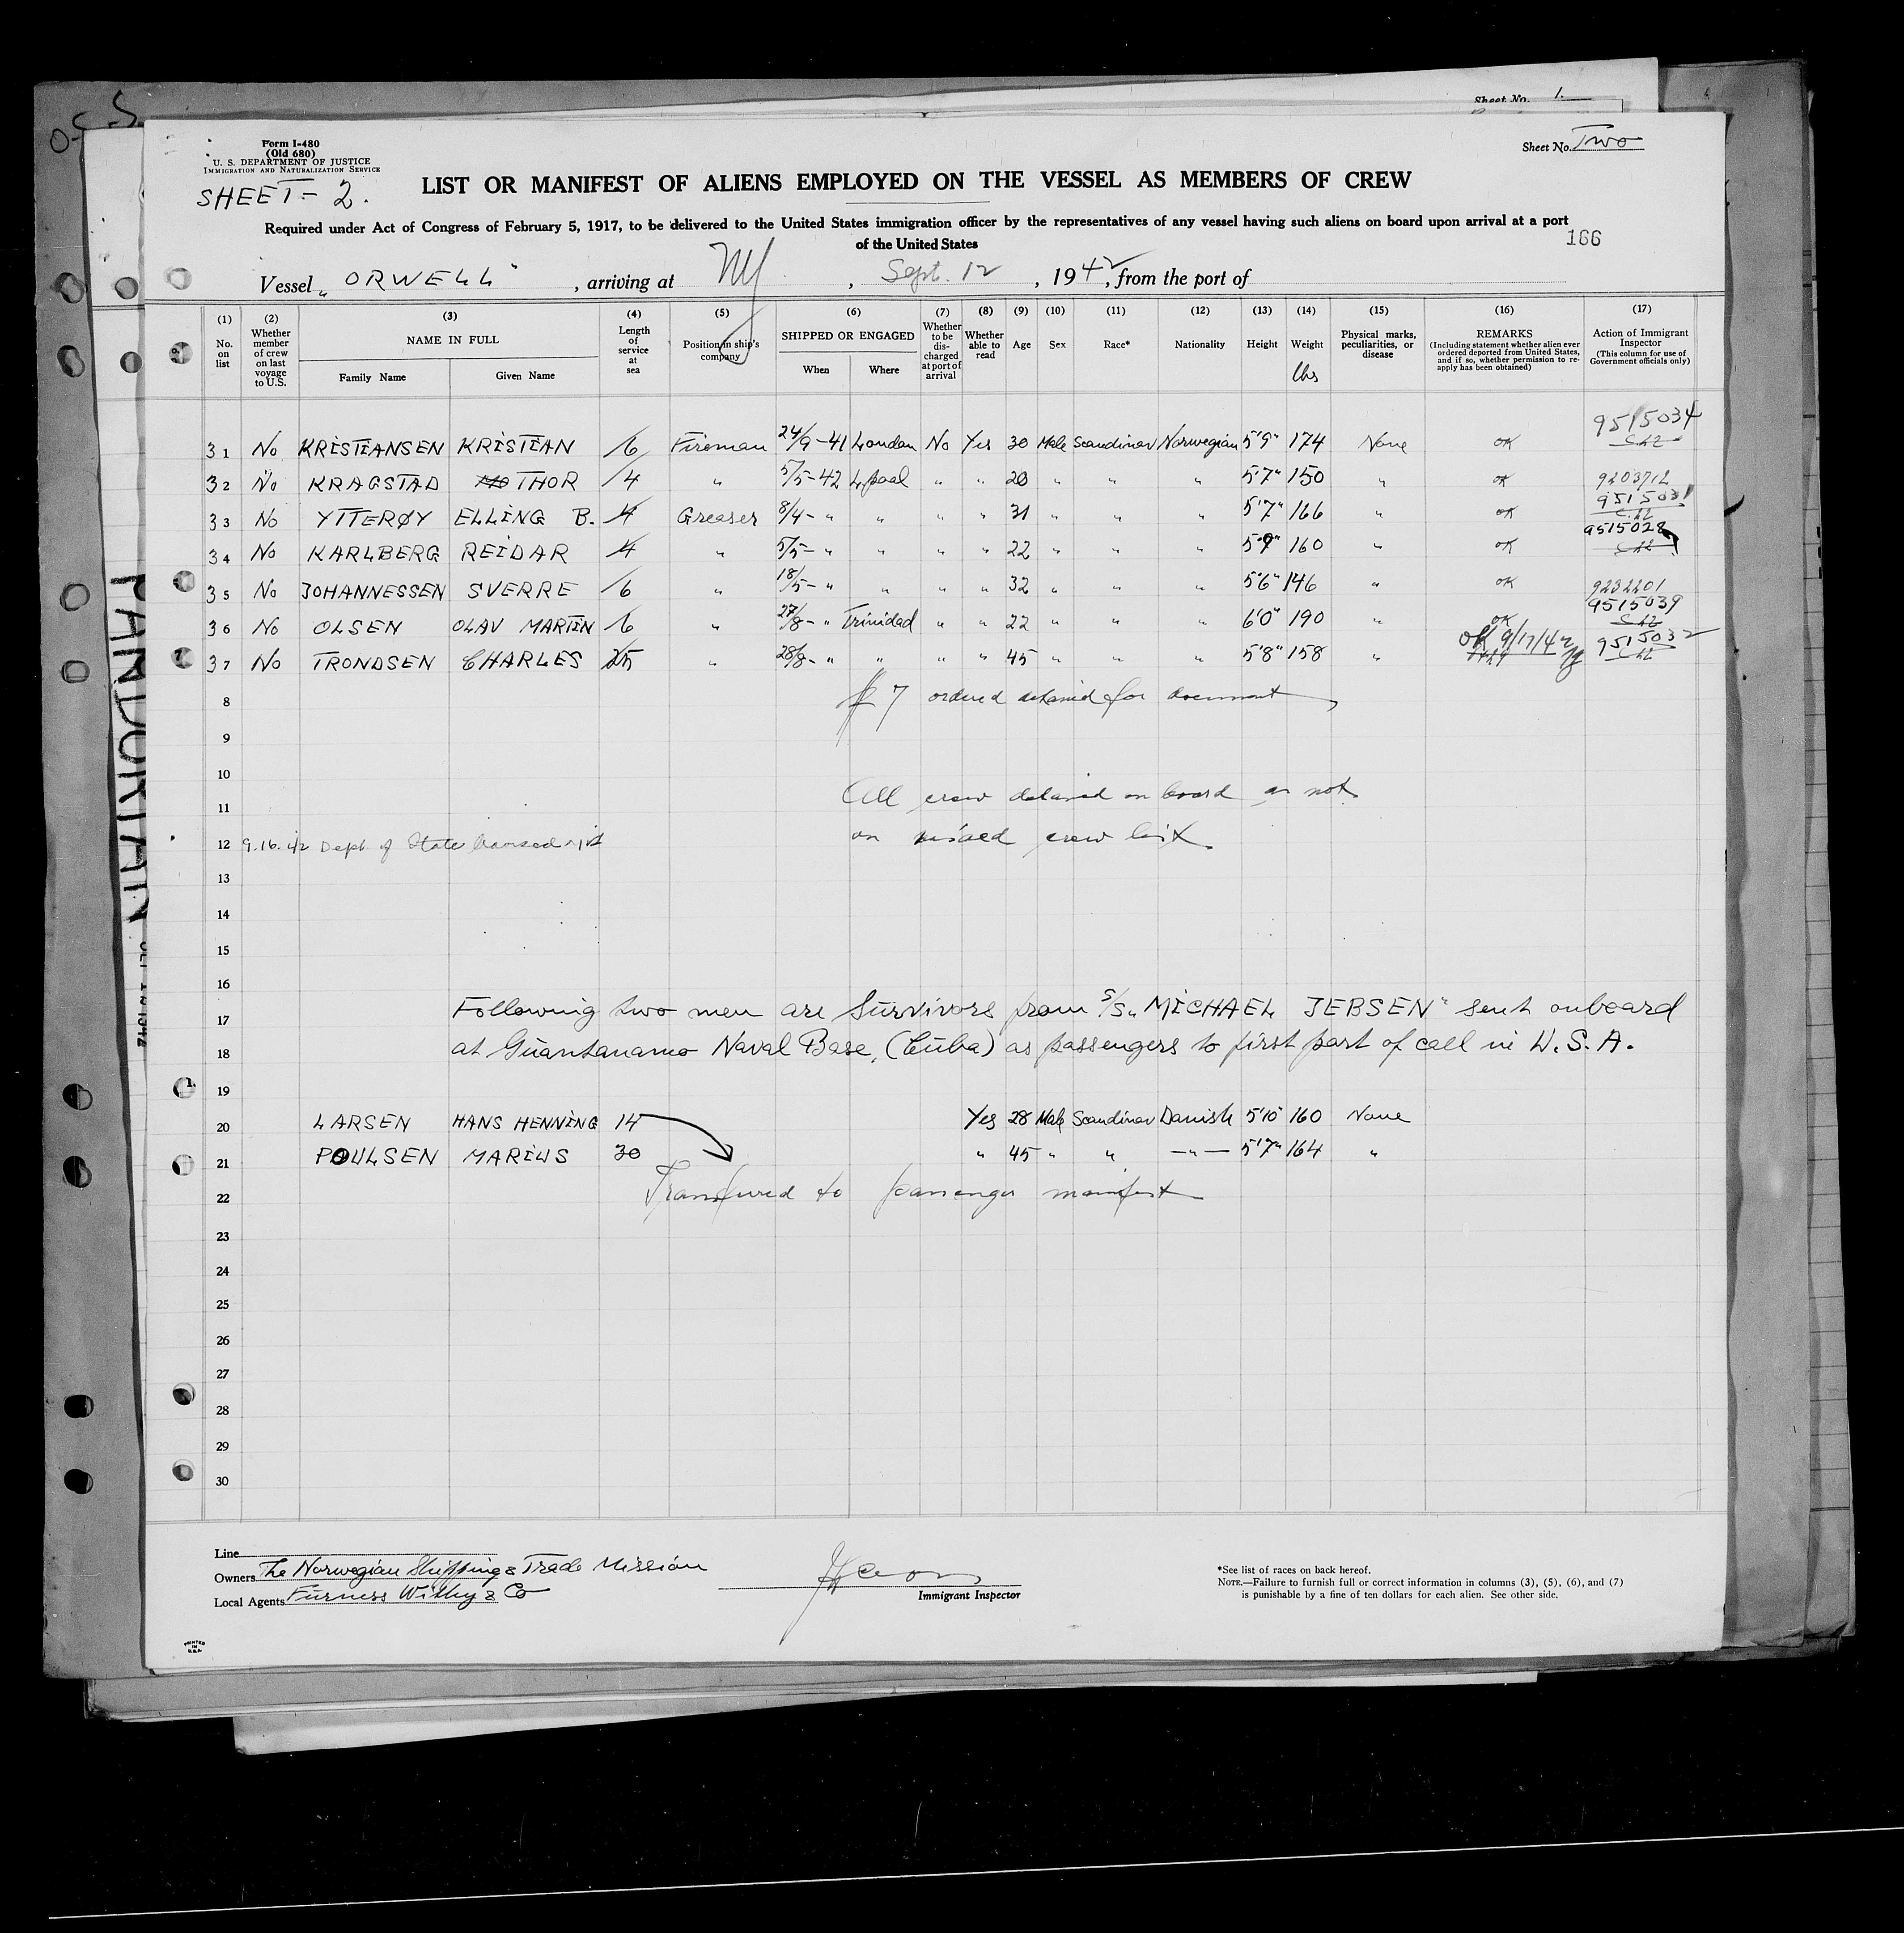 Sheet No. 1.
Form I-480
(Old 680)
U. S. DEPARTMENT OF JUSTICE
IMMIGRATION AND NATURALIZATION SERVICE
Sheet No. Two
SHEET - 2.
LIST OR MANIFEST OF ALIENS EMPLOYED ON THE VESSEL AS MEMBERS OF CREW
Required under Act of Congress of February 5, 1917, to be delivered to the United States immigration officer by the representatives of any vessel having such aliens on board upon arrival at a port
of the United States
166
Vessel "ORWELL", arriving at NY, Sept. 12, 1942, from the port of
(1) No. on list
(2) Whether member of crew on last voyage to U.S.
(3) NAME IN FULL
Family Name
Given Name
(4) Length of service at sea
(5) Position in ship's company
(6) SHIPPED OR ENGAGED
When
Where
(7) Whether to be discharged at port of arrival
(8) Whether able to read
(9) Age
(10) Sex
(11) Race*
(12) Nationality
(13) Height
(14) Weight lbs
(15) Physical marks, peculiarities, or disease
(16) REMARKS (Including statement whether alien ever ordered deported from United States, and if so, whether permission to reapply has been obtained)
(17) Action of Immigrant Inspector (This column for use of Government officials only)
31 No KRISTIANSEN KRISTIAN 6 Fireman 24/9-41 London No Yes 30 Male Scandinav Norwegian 5'9" 174 None OK 9515034
32 No KRAGSTAD THOR 4 " 5/5-42 L.pool " " 20 " " " 5'7" 150 " OK 9203712
33 No YTTERØY ELLING B. 4 Greaser 8/4- " " " " 31 " " " 5'7" 166 " OK 9515031
34 No KARLBERG REIDAR 4 " 5/5- " " " " 22 " " " 5'9" 160 " OK 9515028
35 No JOHANNESSEN SVERRE 6 " 18/5- " " " " 32 " " " 5'6" 146 " OK 9232201
36 No OLSEN OLAV MARTIN 6 " 27/8- " Trinidad " " 22 " " " 6'0" 190 " OK 9515039
37 No TRONDSEN CHARLES 25 " 28/8- " " " " 45 " " " 5'8" 158 " OK 9/17/42 9515032
8 # 7 ordered detained for document
9
10
11 All crew detained on board as not
12 9.16.42 Dept. of State on visaed crew list.
13
14
15
16
17 Following two men are Survivors from S/S "MICHAEL JEBSEN" sent onboard
18 at Guantanamo Naval Base, (Cuba) as passengers to first port of call in U.S.A.
19
20 LARSEN HANS HENNING 14 Yes 28 Male Scandinav Danish 5'10" 160 None
21 POULSEN MARIUS 30 " 45 " " -"- 5'7" 164 "
22 Transferred to passenger manifest
23
24
25
26
27
28
29
30
Line
Owners The Norwegian Shipping & Trade Mission
Local Agents Furness Withy & Co
Immigrant Inspector
*See list of races on back hereof.
NOTE.—Failure to furnish full or correct information in columns (3), (5), (6), and (7)
is punishable by a fine of ten dollars for each alien. See other side.
PRINTED IN U.S.A.